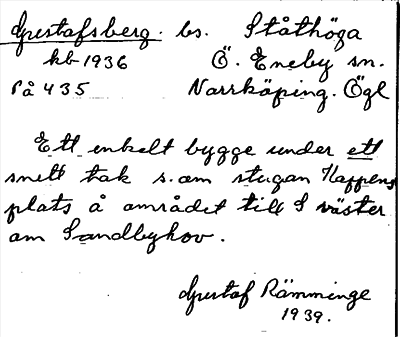 Gustafsberg. bs. Ståthöga
kb 1936 Ö. Eneby sn.
På 435 Norrköping. Ögl
Ett enkelt bygge under ett
snett tak s.om stugan Hoppens
plats å området till S väster
om Sandbyhov.
Gustaf Rämminge
1939.